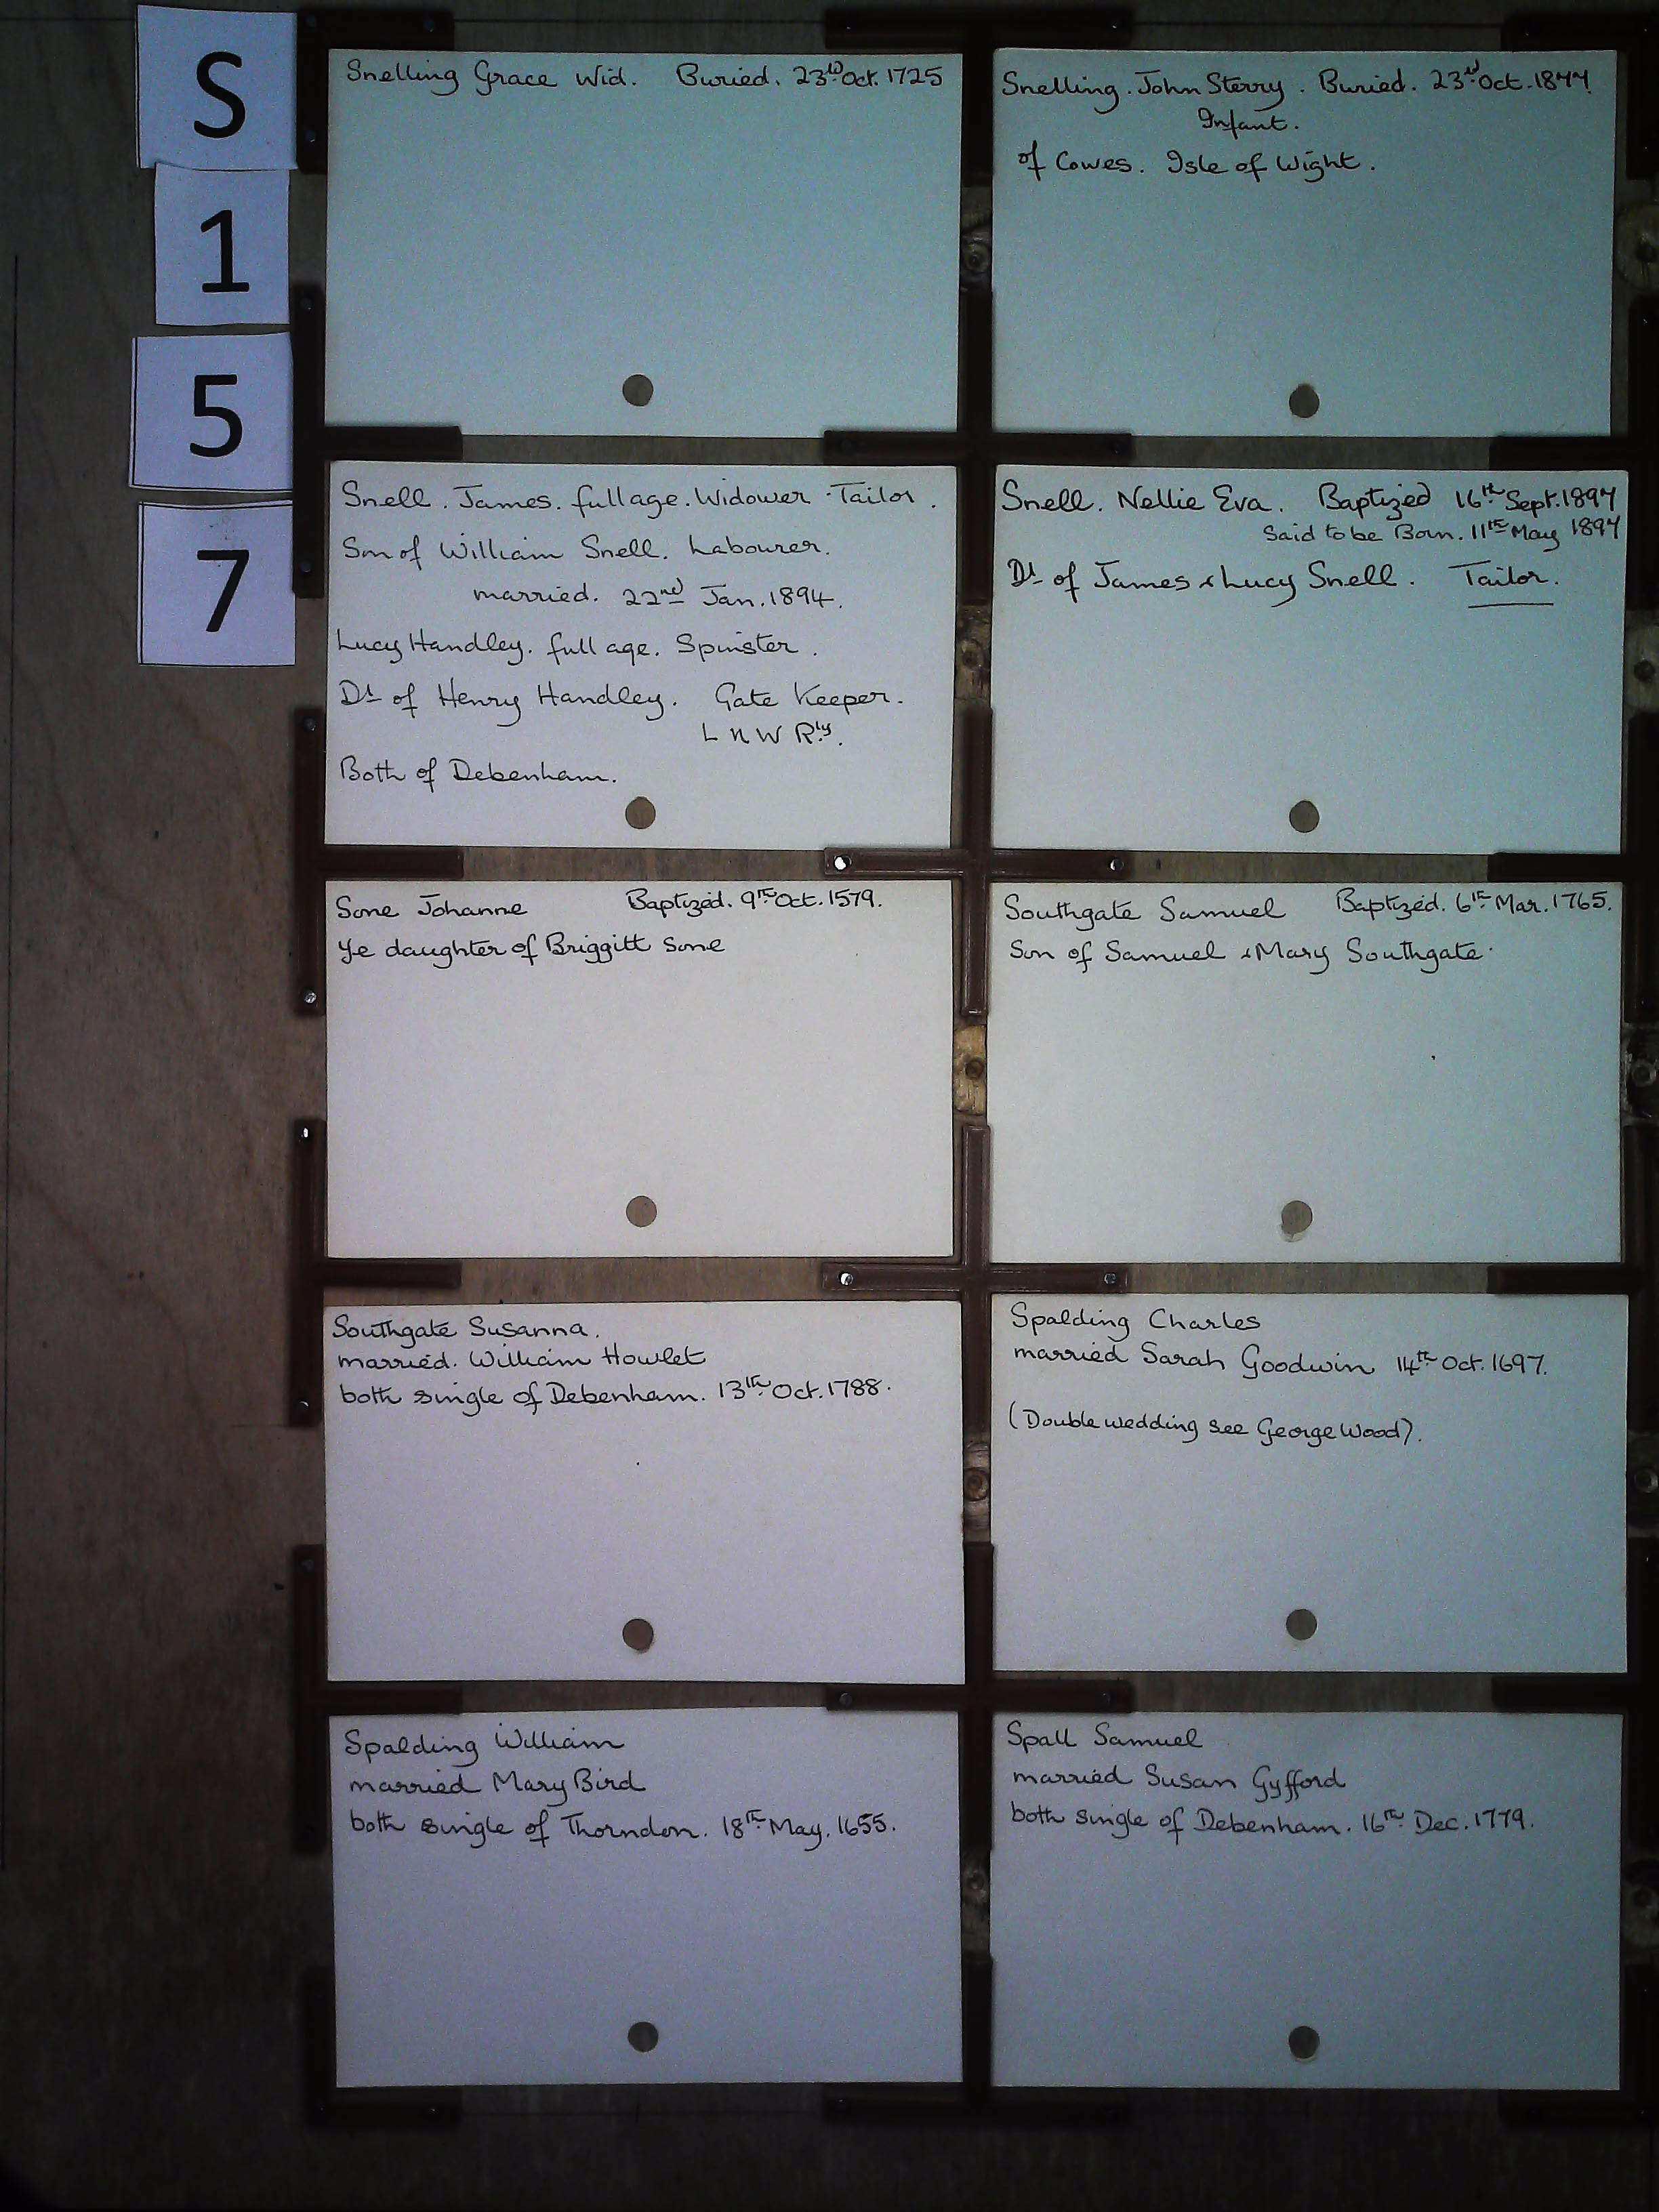 S
1
5
7
Snelling Grace Wid. Buried. 23rd Oct. 1725
Snelling. John Sterry. Buried. 23rd Oct. 1877.
Infant.
of Cowes. Isle of Wight.
Snell. James. full age. Widower. Tailor.
Son of William Snell. Labourer.
married. 22nd Jan. 1894.
Lucy Handley. full age. Spinster.
Dr of Henry Handley. Gate Keeper.
L N W Rly.
Both of Debenham.
Snell. Nellie Eva. Baptized 16th Sept. 1897
Said to be Born. 11th May 1897
Dr of James & Lucy Snell. Tailor.
Sone Johanne Baptized. 9th Oct. 1579.
ye daughter of Briggitt Sone
Southgate Samuel Baptized. 6th Mar. 1765.
Son of Samuel & Mary Southgate.
Southgate Susanna.
married. William Howlet
both single of Debenham. 13th Oct. 1788.
Spalding Charles
married Sarah Goodwin 14th Oct. 1697.
(Double wedding see George Wood).
Spalding William
married Mary Bird
both single of Thorndon. 18th May. 1655.
Spall Samuel
married Susan Gyfford
both single of Debenham. 16th Dec. 1779.